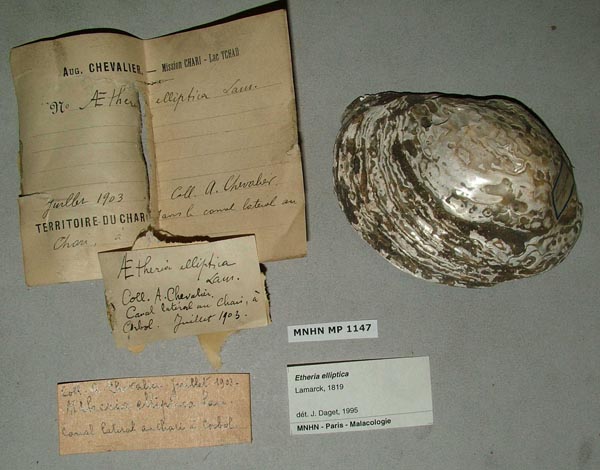 AUG. CHEVALIER. — Mission CHARI - Lac TCHAD
No Ætheria elliptica Lam.
Juillet 1903
Coll. A. Chevalier.
TERRITOIRE DU CHARI
dans le canal latéral au
Chari, à
Ætheria elliptica
Lam.
Coll. A. Chevalier.
Canal latéral au Chari, à
Corbol. Juillet 1903.
MNHN MP 1147
Etheria elliptica
Lamarck, 1819
dét. J. Daget, 1995
MNHN - Paris - Malacologie
Coll. A. Chevalier Juillet 1903.
Ætheria elliptica Lam.
Canal latéral au Chari à Corbol.